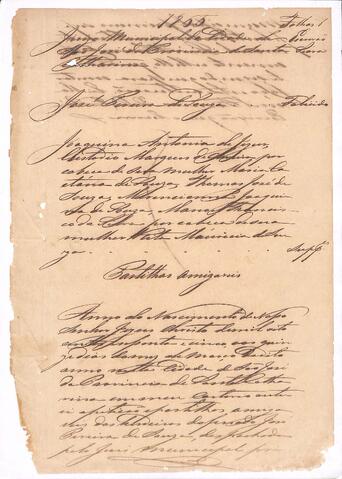 1855
Folhas 1
Juizo Municipal da Cidade de
São José da Provincia de Santa
Catharina
José Pereira de Souza
Fallecido
Joaquina Antonia de Jesus,
Marques por
cabeça de sua mulher Maria Ca
etana de Souza, Thomas José de
Souza, Joaqui
na de Souza, Manoel Francis
co da por cabeça de sua
mulher Mauricia de Sou
za
Supp.es
Partilhas amigaveis
Anno do Nascimento de Nosso
Senhor Jezus Christo de mil oito
centos e cincoenta e cinco aos quin
ze dias do mez de Março do dito
anno nesta Cidade de São José
da Provincia de Santa Catha
rina em meu Cartorio autu
ei a petição e partilhas amiga
veis dos herdeiros do finado José
Pereira de Souza, despachada
pelo Juiz Municipal por